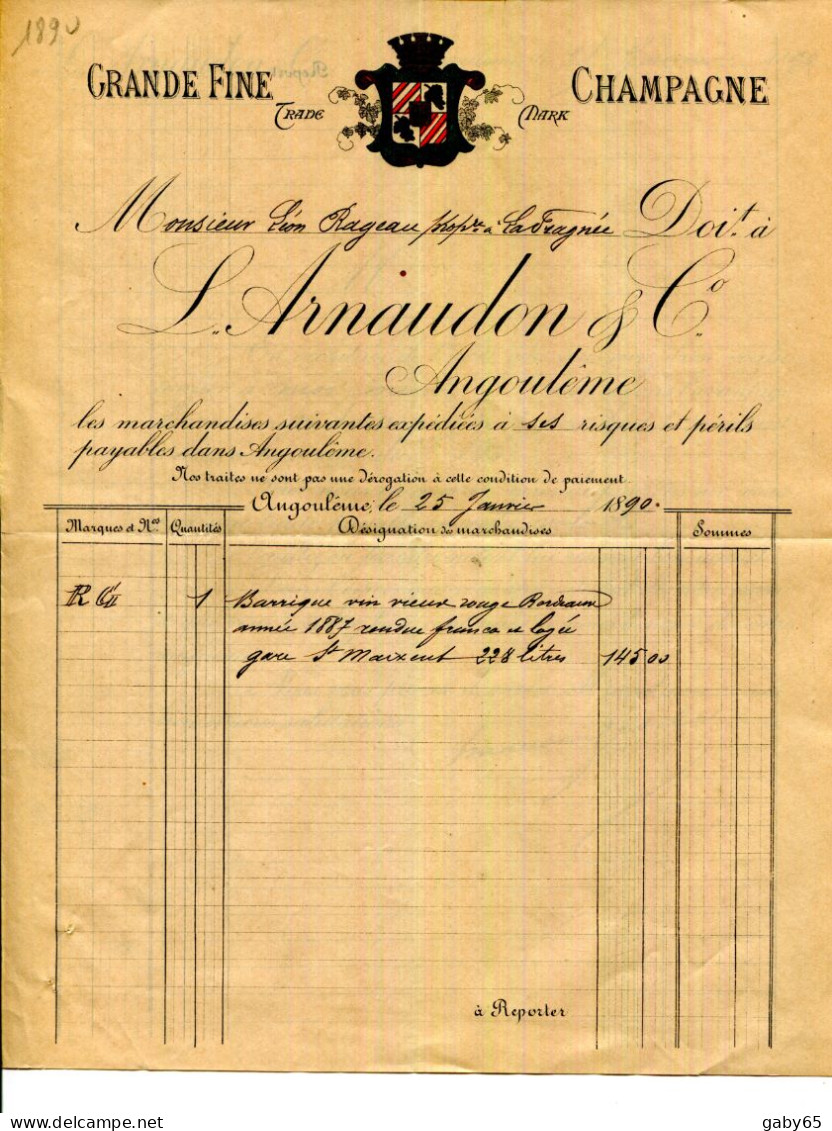 1890
GRANDE FINE CHAMPAGNE
TRADE MARK
Monsieur Léon Rageau à Doit. à
L. Arnaudon & Co.
Angoulême
les marchandises suivantes expédiées à ses risques et périls
payables dans Angoulême.
Nos traites ne sont pas une dérogation à cette condition de paiement.
Angoulême, le 25 Janvier 1890.
Marques et Nos Quantités Désignation des marchandises Sommes
1 Barrique vin vieux rouge Bordeaux
année 1887 rendue franco et logée
gare St Maixent 228 litres 145 00
à Reporter
gaby65